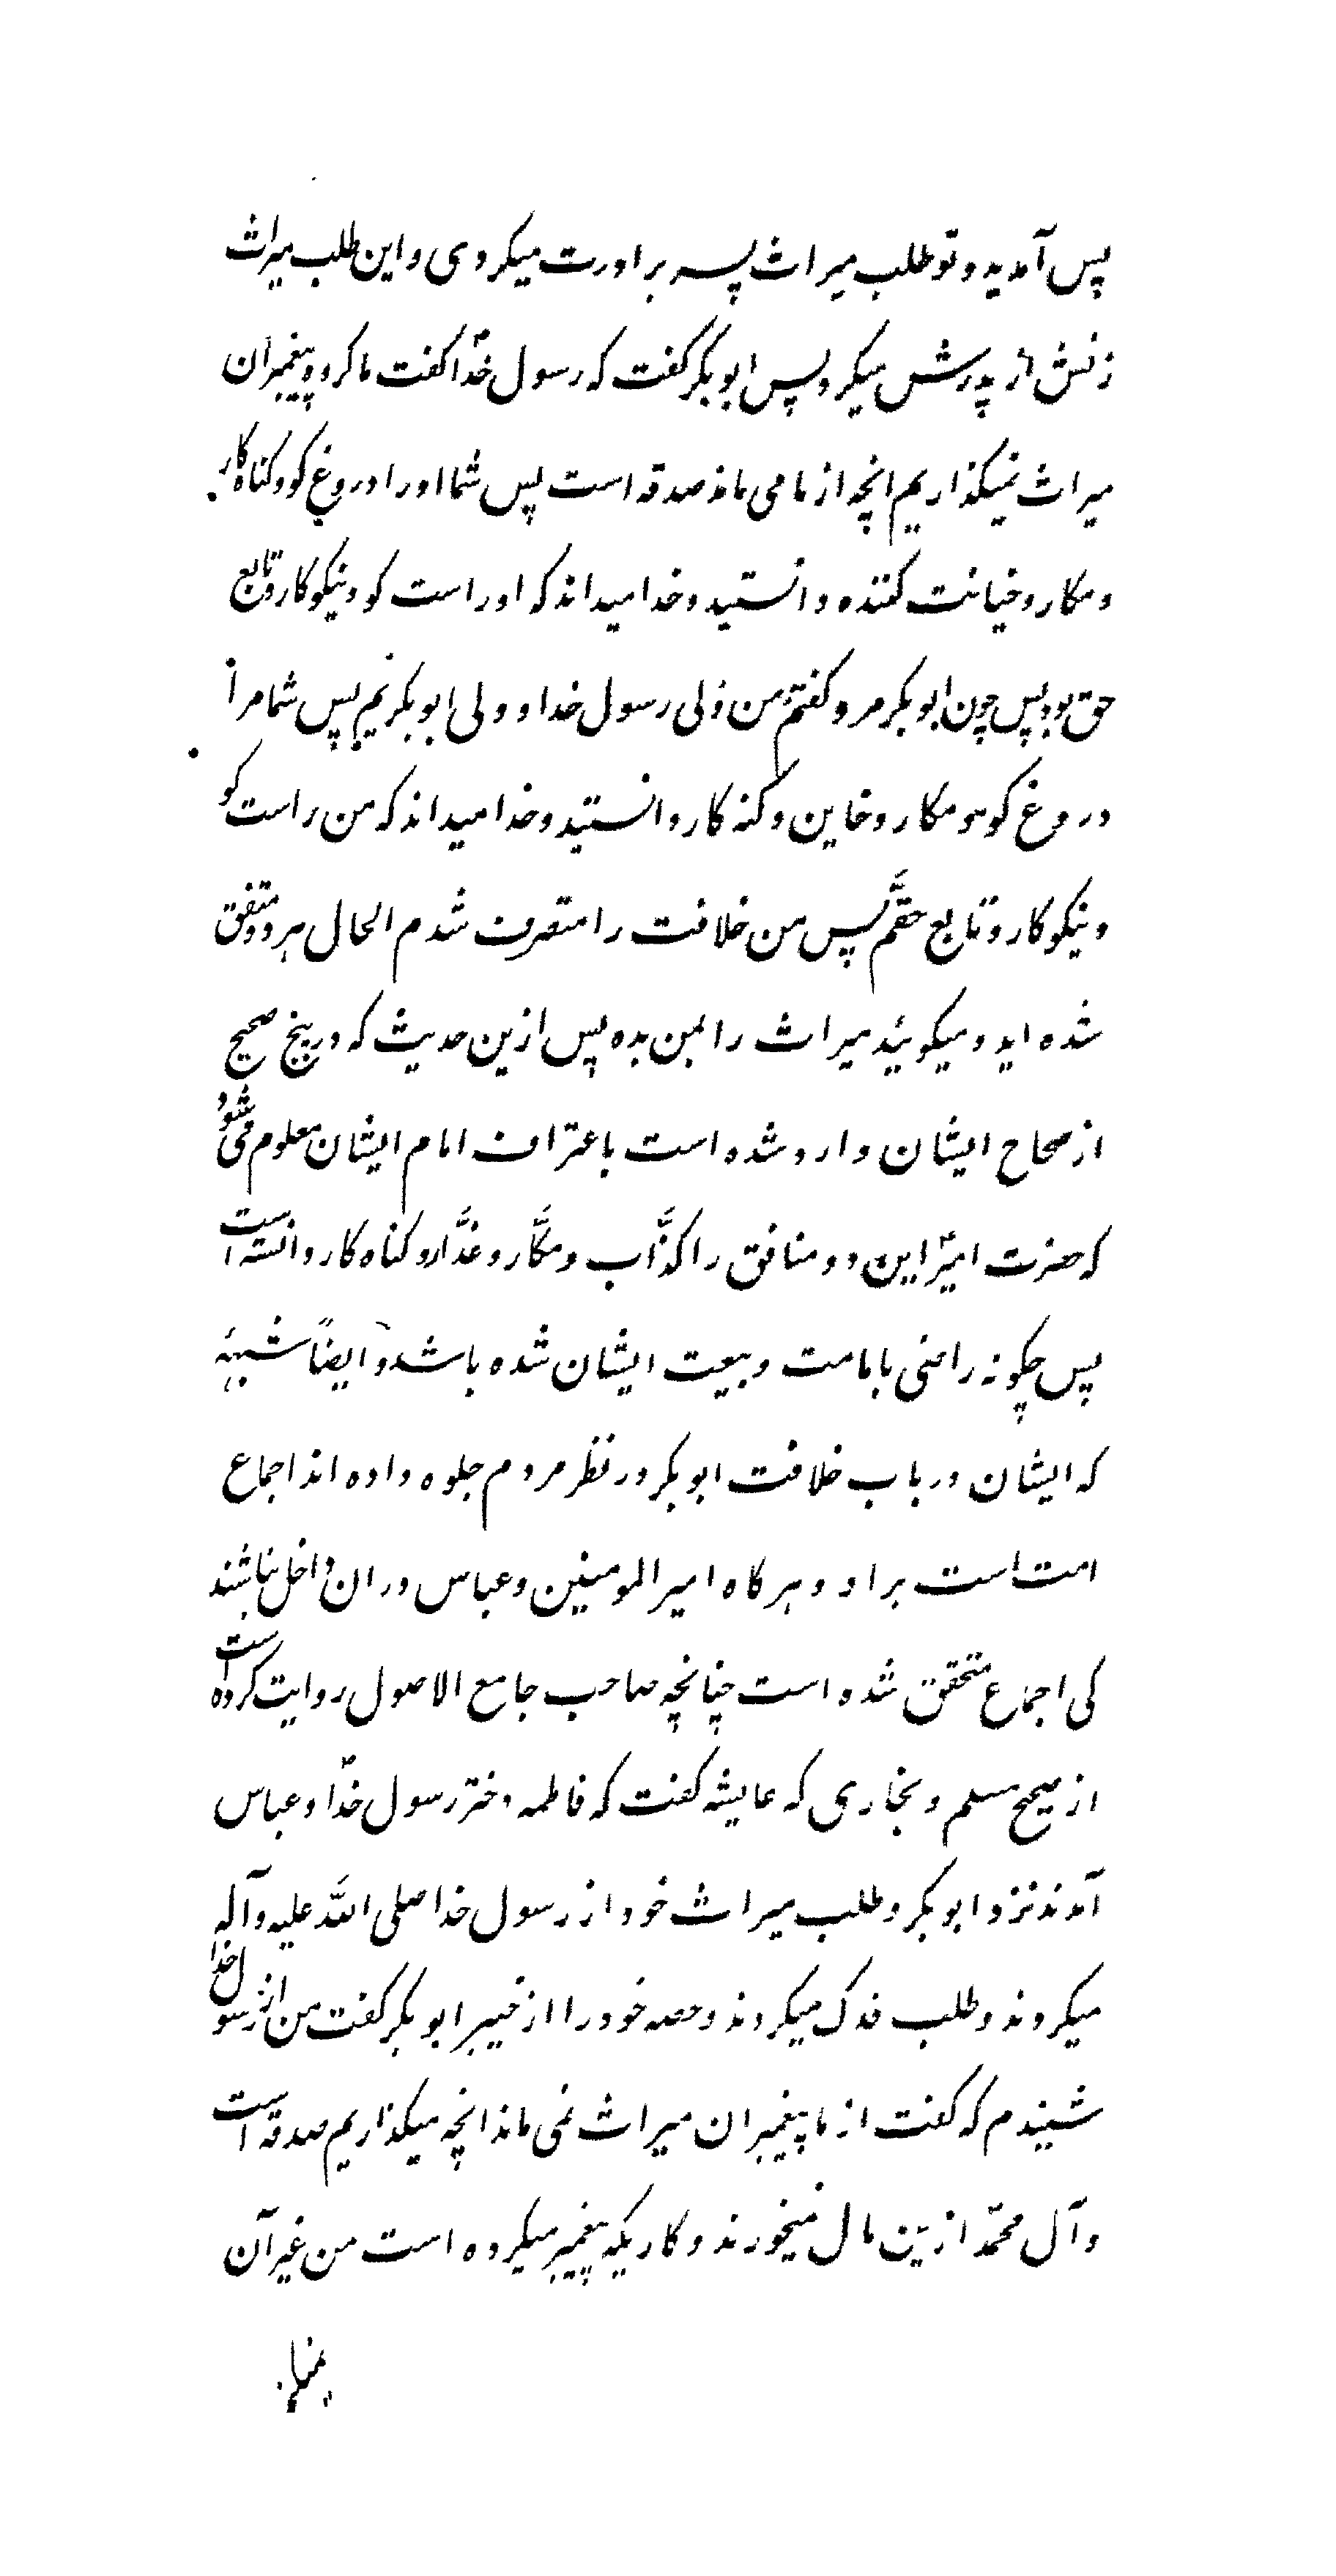 پس آمدید و تو طلب میراث پسر برادرت میکردی و این طلب میراث
زنش از پدرش میکرد پس ابوبکر گفت که رسول خدا گفت ما گروه پیغمبران
میراث نمیگذاریم انچه از ما می ماند صدقه است پس شما او را دروغ گو و گناه کار
و مکار و خیانت کننده دانستید و خدا میداند که او راست گو و نیکو کار و تابع
حق بود پس چون ابوبکر مرد گفتم من ولی رسول خدا و ولی ابوبکرم پس شما مرا
دروغ گو و مکار و خاین و گنه کار دانستید و خدا میداند که من راست گو
و نیکو کار و تابع حقّم پس من خلافت را متصرف شدم الحال هر دو متفق
شده اید و میگوئید میراث را بمن بده پس ازین حدیث که در پنج صحیح
از صحاح ایشان وارد شده است باعتراف امام ایشان معلوم می شود
که حضرت امیرؑ این دو منافق را کذّاب و مکّار و غدّار و گناه کار دانسته است
پس چگونه راضی بامامت و بیعت ایشان شده باشد و ایضاً شبهۀ
که ایشان در باب خلافت ابوبکر در نظر مردم جلوه داده اند اجماع
امت است بر او و هرگاه امیر المومنین و عباس در ان داخل نباشند
کی اجماع متحقق شده است چنانچه صاحب جامع الاصول روایت کرده است
از صحیح مسلم و بخاری که عایشه گفت که فاطمه دختر رسول خدا و عباس
آمدند نزد ابوبکر و طلب میراث خود از رسول خدا صلی اللّه علیه و آله
میکردند و طلب فدک میکردند و حصه خود را از خیبر ابوبکر گفت من از رسول خدا
شنیدم که گفت از ما پیغمبران میراث نمی ماند انچه میگذاریم صدقه است
و آل محمّد ازین مال میخورند و کاریکه پیغمبر میکرده است من غیر آن